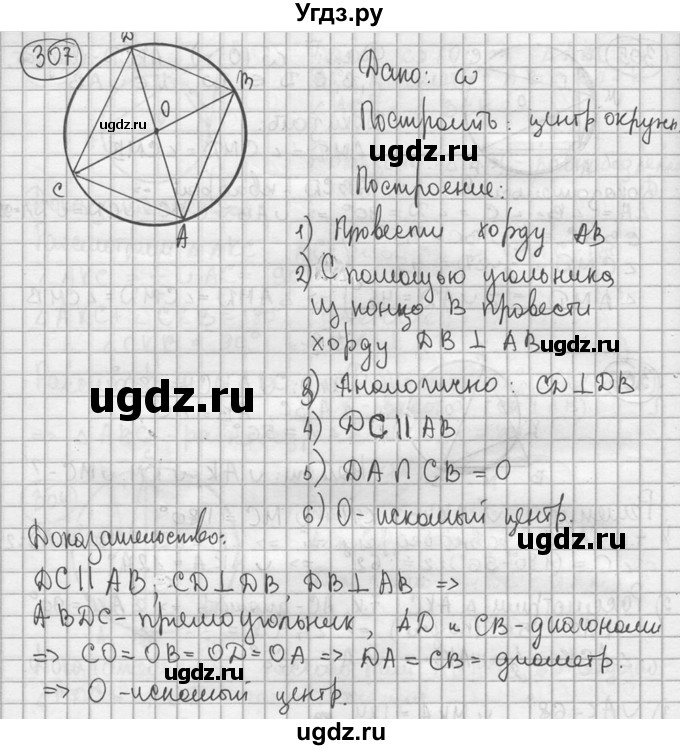 Угдз.ру
307
D
B
O
ugdz.ru
C
A
Дано: ω
Построить: центр окружн.
ugdz.ru
Построение:
1) Провести хорду AB
2) С помощью угольника
из конца B провести
хорду DB ⊥ AB
ugdz.ru
ugdz.ru
3) Аналогично: CD ⊥ DB
4) DC || AB
5) DA ∩ CB = O
6) O - искомый центр.
ugdz.ru
Доказательство:
DC || AB, CD ⊥ DB, DB ⊥ AB =>
ABDC - прямоугольник, AD и CB - диагонали
=> CO = OB = OD = OA => DA = CB = диаметр.
ugdz.ru
=> O - искомый центр.
ugdz.ru